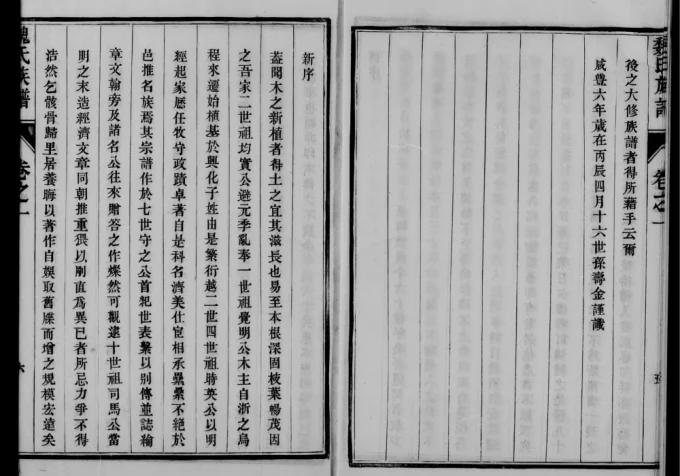 魏氏族譜
卷之一
後之大修族譜者得所藉手云爾
咸豊六年歲在丙辰四月十六世孫壽金謹識
新序
蓋聞木之新植者得土之宜其滋長也易至本根深固枝葉暢茂因
之吾家二世祖均實公避元季亂奉一世祖覺明公木主自浙之烏
程來遷始植基於興化子姓由是繁衍越二世四世祖時英公以明
經起家歷任牧守政蹟卓著自是科名濟美仕宦相承纍纍不絕於
邑推名族焉其宗譜作於七世守之公首圯世表繫以別傳並誌輪
章文翰旁及諸名公往來贈答之作燦然可觀逮十世祖司馬公當
明之末造經濟文章同朝推重猥以剛直為異已者所忌力爭不得
浩然乞骸骨歸里居養晦以著作自娛取舊牒而增之規模宏遠矣
魏氏族譜
卷之一
六